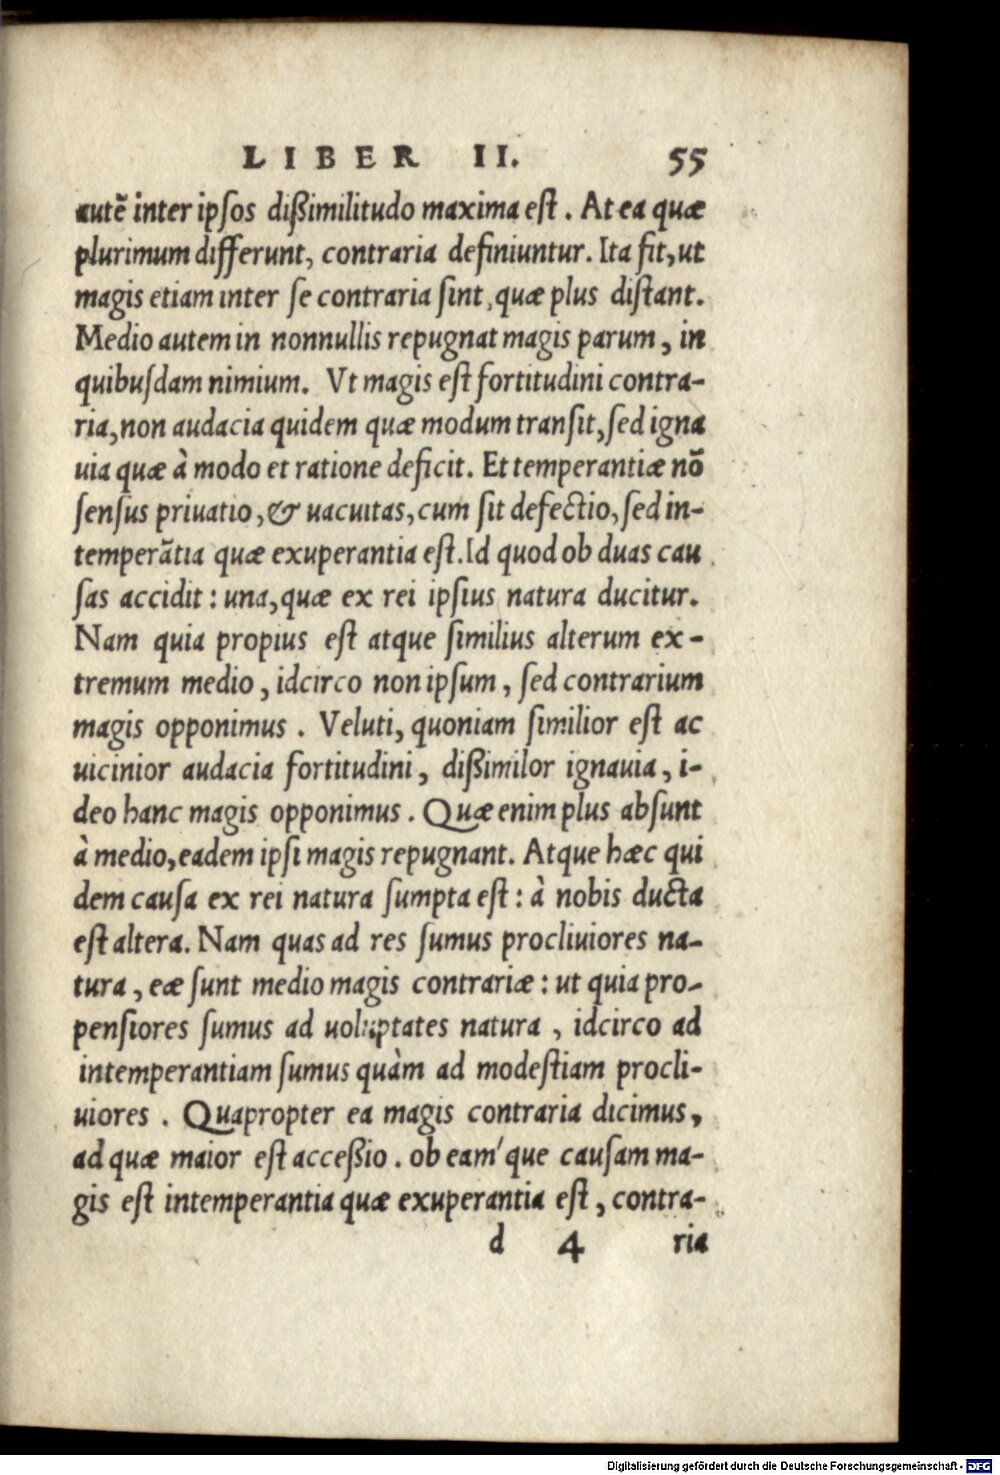 LIBER II. 55
autē inter ipſos dißimilitudo maxima eſt. At ea quæ
plurimum differunt, contraria definiuntur. Ita fit, ut
magis etiam inter ſe contraria ſint, quæ plus diſtant.
Medio autem in nonnullis repugnat magis parum, in
quibuſdam nimium. Vt magis eſt fortitudini contra-
ria, non audacia quidem quæ modum tranſit, ſed igna
uia quæ à modo et ratione deficit. Et temperantiæ nō
ſenſus priuatio, & uacuitas, cum ſit defectio, ſed in-
temperātia quæ exuperantia eſt. Id quod ob duas cau
ſas accidit: una, quæ ex rei ipſius natura ducitur.
Nam quia propius eſt atque ſimilius alterum ex-
tremum medio, idcirco non ipſum, ſed contrarium
magis opponimus. Veluti, quoniam ſimilior eſt ac
uicinior audacia fortitudini, dißimilor ignauia, i-
deo hanc magis opponimus. Quæ enim plus abſunt
à medio, eadem ipſi magis repugnant. Atque hæc qui
dem cauſa ex rei natura ſumpta eſt: à nobis ducta
eſt altera. Nam quas ad res ſumus procliuiores na-
tura, eæ ſunt medio magis contrariæ: ut quia pro-
penſiores ſumus ad uoluptates natura, idcirco ad
intemperantiam ſumus quàm ad modeſtiam procli-
uiores. Quapropter ea magis contraria dicimus,
ad quæ maior eſt acceßio. ob eam'que cauſam ma-
gis eſt intemperantia quæ exuperantia eſt, contra-
d 4 ria
Digitalisierung gefördert durch die Deutsche Forschungsgemeinschaft - DFG